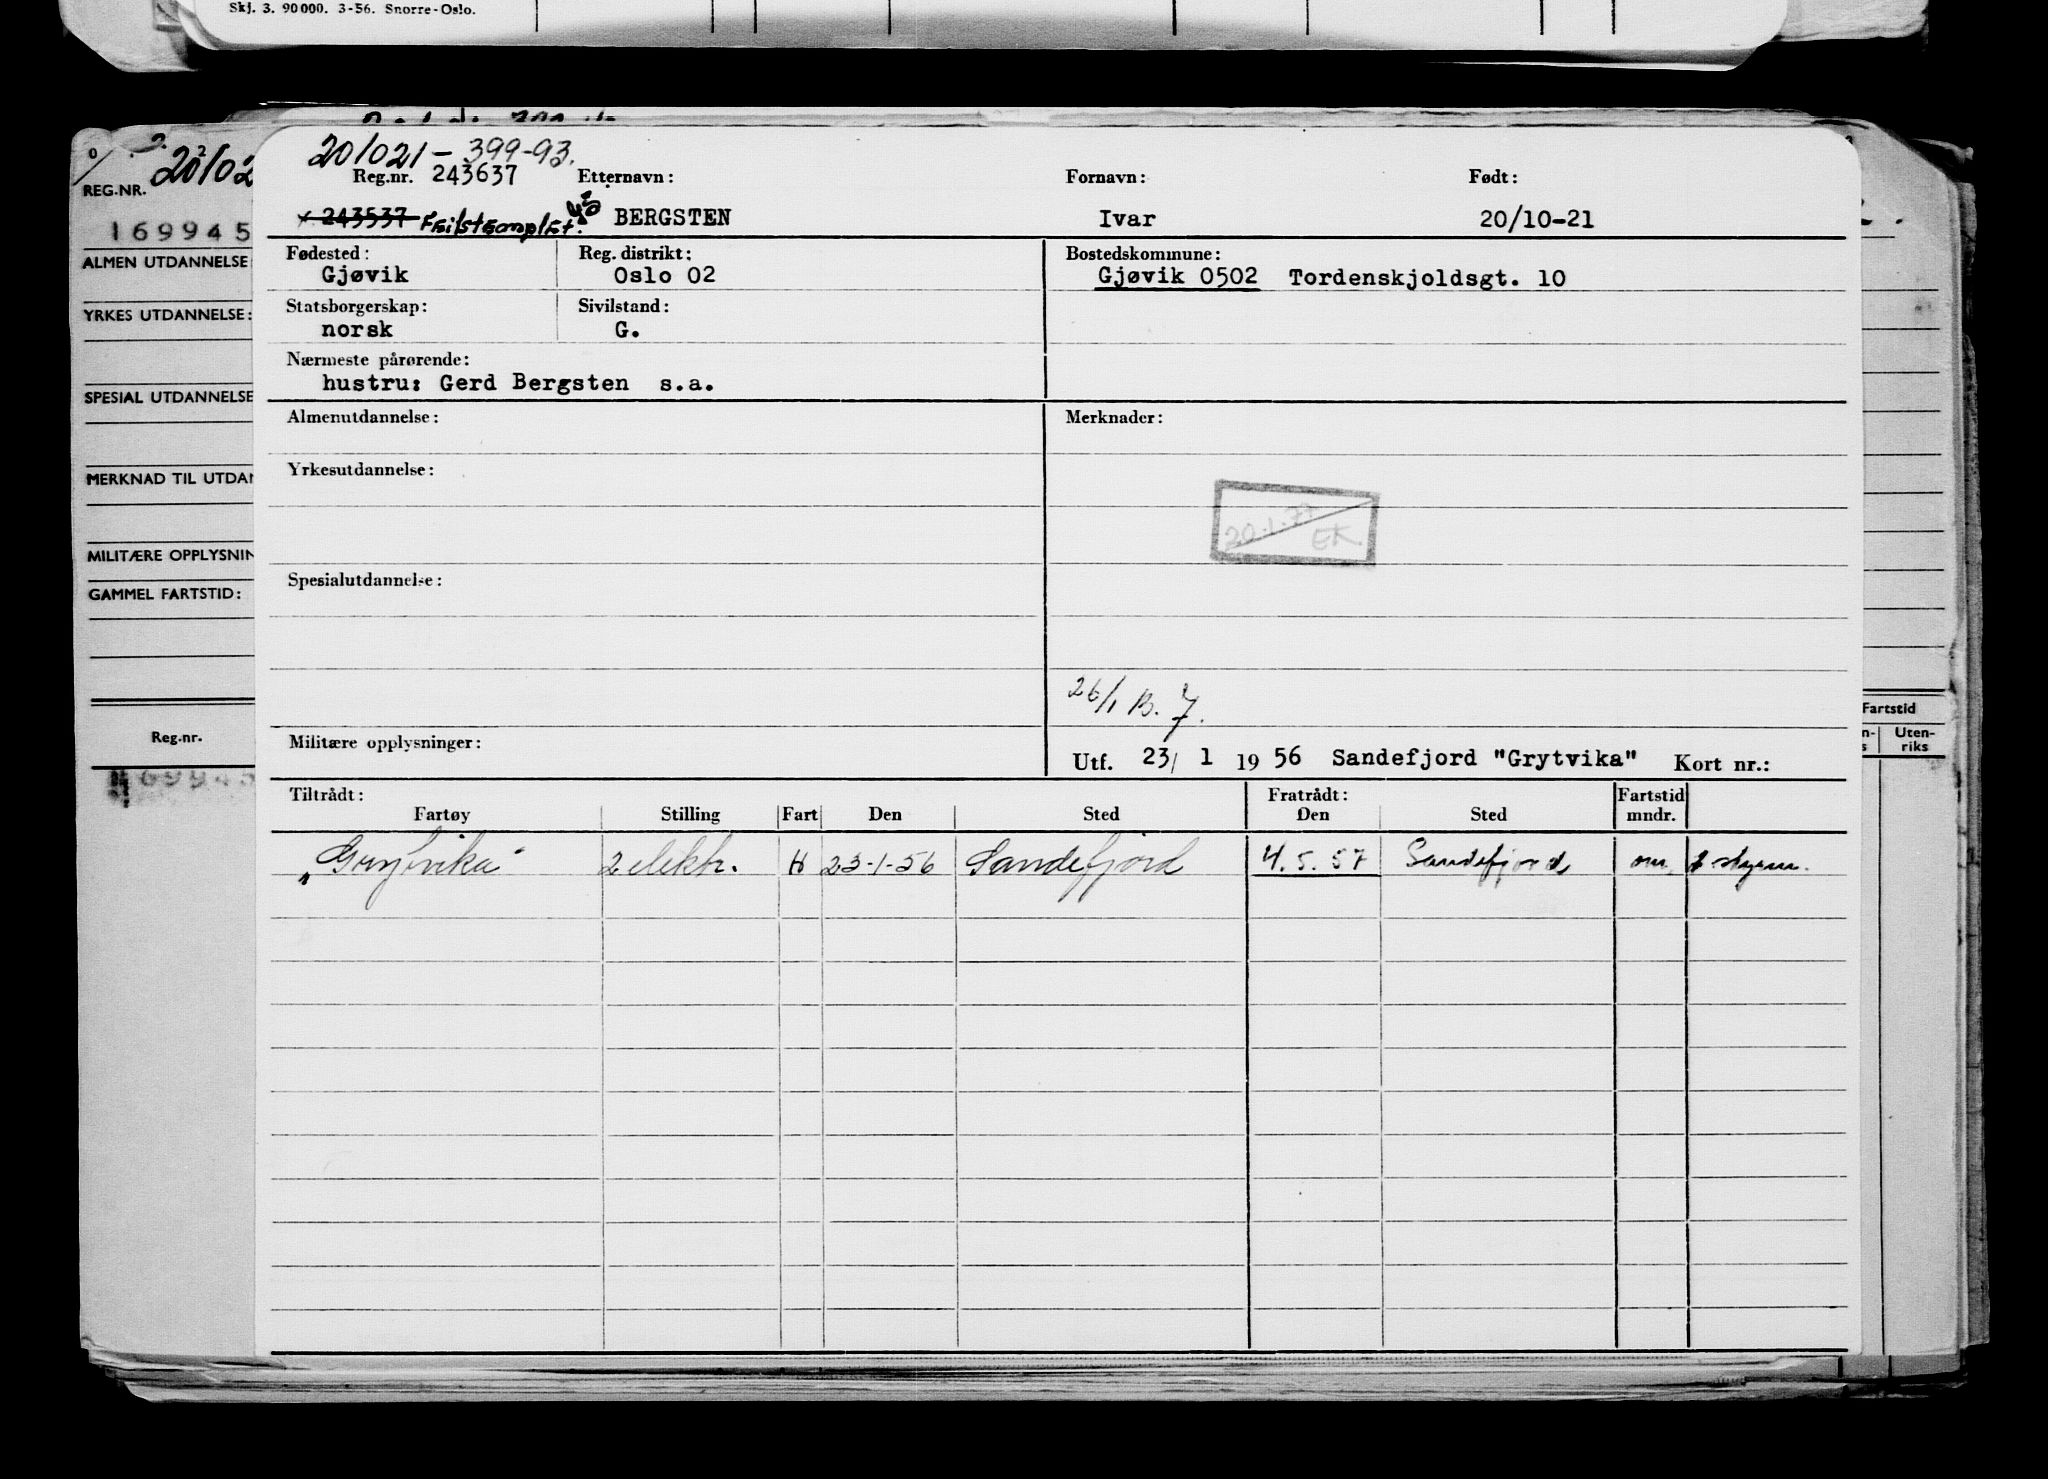 Skj. 3. 90 000. 3-56. Snorre-Oslo.
201021-399-93.
Reg.nr. 243637 Etternavn: Fornavn: Født:
243537 Feilstemplet. BERGSTEN Ivar 20/10-21
Fødested: Reg. distrikt: Bostedskommune:
Gjøvik Oslo 02 Gjøvik 0502 Tordenskjoldsgt. 10
Statsborgerskap: Sivilstand:
norsk G.
Nærmeste pårørende:
hustru: Gerd Bergsten s.a.
Almenutdannelse: Merknader:
Yrkesutdannelse:
20.1.77
EK.
Spesialutdannelse:
26/1 B. 7.
Militære opplysninger:
Utf. 23/ 1 19 56 Sandefjord "Grytvika" Kort nr.:
Tiltrådt: Fratrådt: Fartstid
Fartøy Stilling Fart Den Sted Den Sted mndr.
"Grytvika" 2 elektr. H 23-1-56 Sandefjord 4.5.57 Sandefjord om.
REG.NR. 20102
169945
ALMEN UTDANNELSE
YRKES UTDANNELSE:
SPESIAL UTDANNELSE
MERKNAD TIL UTDAN
MILITÆRE OPPLYSNIN
GAMMEL FARTSTID:
Reg.nr.
169945
Fartstid
Uten-
riks